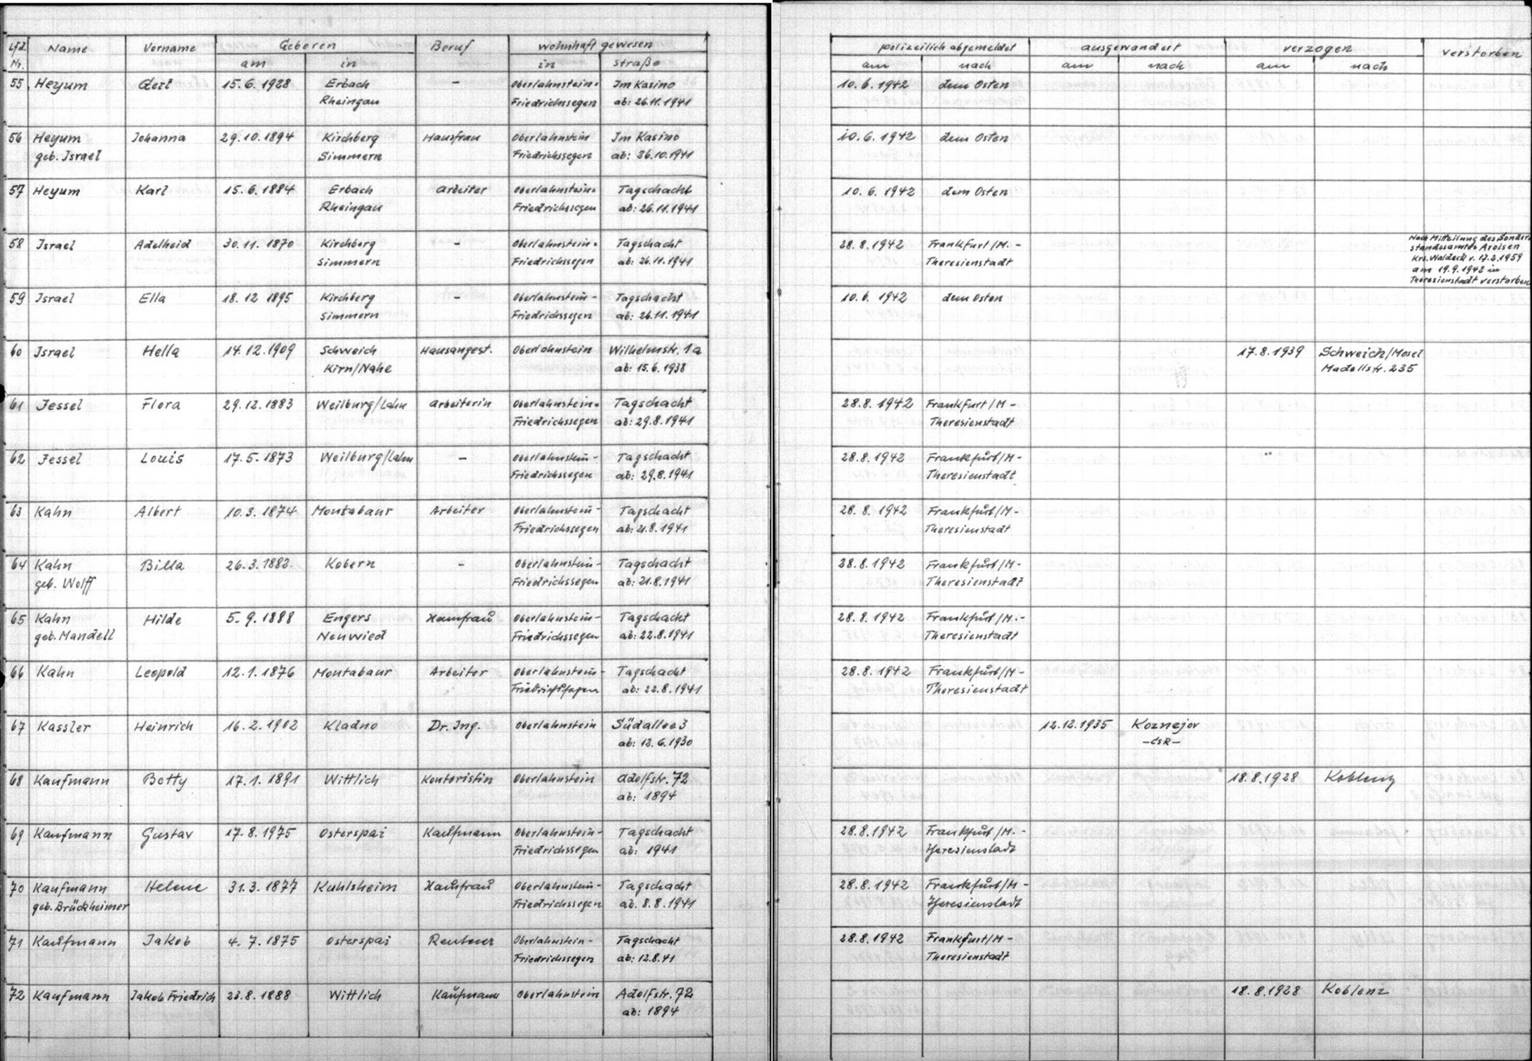 Lfd. Name Vorname Geboren Beruf wohnhaft gewesen polizeilich abgemeldet ausgewandert verzogen verstorben
Nr. am in in Straße am nach am nach am nach
55 Heyum Gert 15.6.1928 Erbach - Oberlahnstein- Im Kasino 10.6.1942 dem Osten
Rheingau Friedrichssegen ab: 26.11.1941
56 Heyum Johanna 29.10.1894 Kirchberg Hausfrau Oberlahnstein Im Kasino 10.6.1942 dem Osten
geb. Israel Simmern Friedrichssegen ab: 26.10.1941
57 Heyum Karl 15.6.1884 Erbach Arbeiter Oberlahnstein- Tagschacht 10.6.1942 dem Osten
Rheingau Friedrichssegen ab: 26.11.1941
58 Israel Adelheid 30.11.1870 Kirchberg - Oberlahnstein- Tagschacht 28.8.1942 Frankfurt/M.- Nach Mitteilung des Sonder
Simmern Friedrichssegen ab: 26.11.1941 Theresienstadt standesamtes Arolsen
Krs. Waldeck v. 17.2.1959
am 19.9.1942 in
Theresienstadt verstorben
59 Israel Ella 18.12 1895 Kirchberg - Oberlahnstein- Tagschacht 10.6.1942 dem Osten
Simmern Friedrichssegen ab: 26.11.1941
60 Israel Hella 14.12.1909 Schweich Hausangest. Oberlahnstein Wilhelmstr. 1a 17.8.1939 Schweich/Mosel
Kirn/Nahe ab: 15.6.1938 Madellstr. 235
61 Jessel Flora 29.12.1883 Weilburg/Lahn Arbeiterin Oberlahnstein- Tagschacht 28.8.1942 Frankfurt/M-
Friedrichssegen ab: 29.8.1941 Theresienstadt
62 Jessel Louis 17.5.1873 Weilburg/Lahn - Oberlahnstein- Tagschacht 28.8.1942 Frankfurt/M-
Friedrichssegen ab: 29.8.1941 Theresienstadt
63 Kahn Albert 10.3.1874 Montabaur Arbeiter Oberlahnstein- Tagschacht 28.8.1942 Frankfurt/M-
Friedrichssegen ab: 21.8.1941 Theresienstadt
64 Kahn Billa 26.3.1882 Kobern - Oberlahnstein- Tagschacht 28.8.1942 Frankfurt/M-
geb. Wolff Friedrichssegen ab: 21.8.1941 Theresienstadt
65 Kahn Hilde 5.9.1888 Engers Hausfrau Oberlahnstein- Tagschacht 28.8.1942 Frankfurt/M.-
geb. Mandell Neuwied Friedrichssegen ab: 22.8.1941 Theresienstadt
66 Kahn Leopold 12.1.1876 Montabaur Arbeiter Oberlahnstein- Tagschacht 28.8.1942 Frankfurt/M-
Friedrichssegen ab: 22.8.1941 Theresienstadt
67 Kassler Heinrich 16.2.1902 Kladno Dr. Ing. Oberlahnstein Südallee 3 12.12.1935 Koznejov
ab: 12.6.1930 -ČSR-
68 Kaufmann Betty 17.1.1891 Wittlich Kontoristin Oberlahnstein Adolfstr. 72 18.8.1928 Koblenz
ab: 1894
69 Kaufmann Gustav 17.8.1975 Osterspai Kaufmann Oberlahnstein- Tagschacht 28.8.1942 Frankfurt/M.-
Friedrichssegen ab: 1941 Theresienstadt
70 Kaufmann Helene 31.3.1877 Kuhlsheim Hausfrau Oberlahnstein- Tagschacht 28.8.1942 Frankfurt/M-
geb. Brückheimer Friedrichssegen ab. 8.8.1941 Theresienstadt
71 Kaufmann Jakob 4.7.1875 Osterspai Rentner Oberlahnstein- Tagschacht 28.8.1942 Frankfurt/M-
Friedrichssegen ab: 12.8.41 Theresienstadt
72 Kaufmann Jakob Friedrich 28.8.1888 Wittlich Kaufmann Oberlahnstein Adolfstr. 72 18.8.1928 Koblenz
ab: 1894